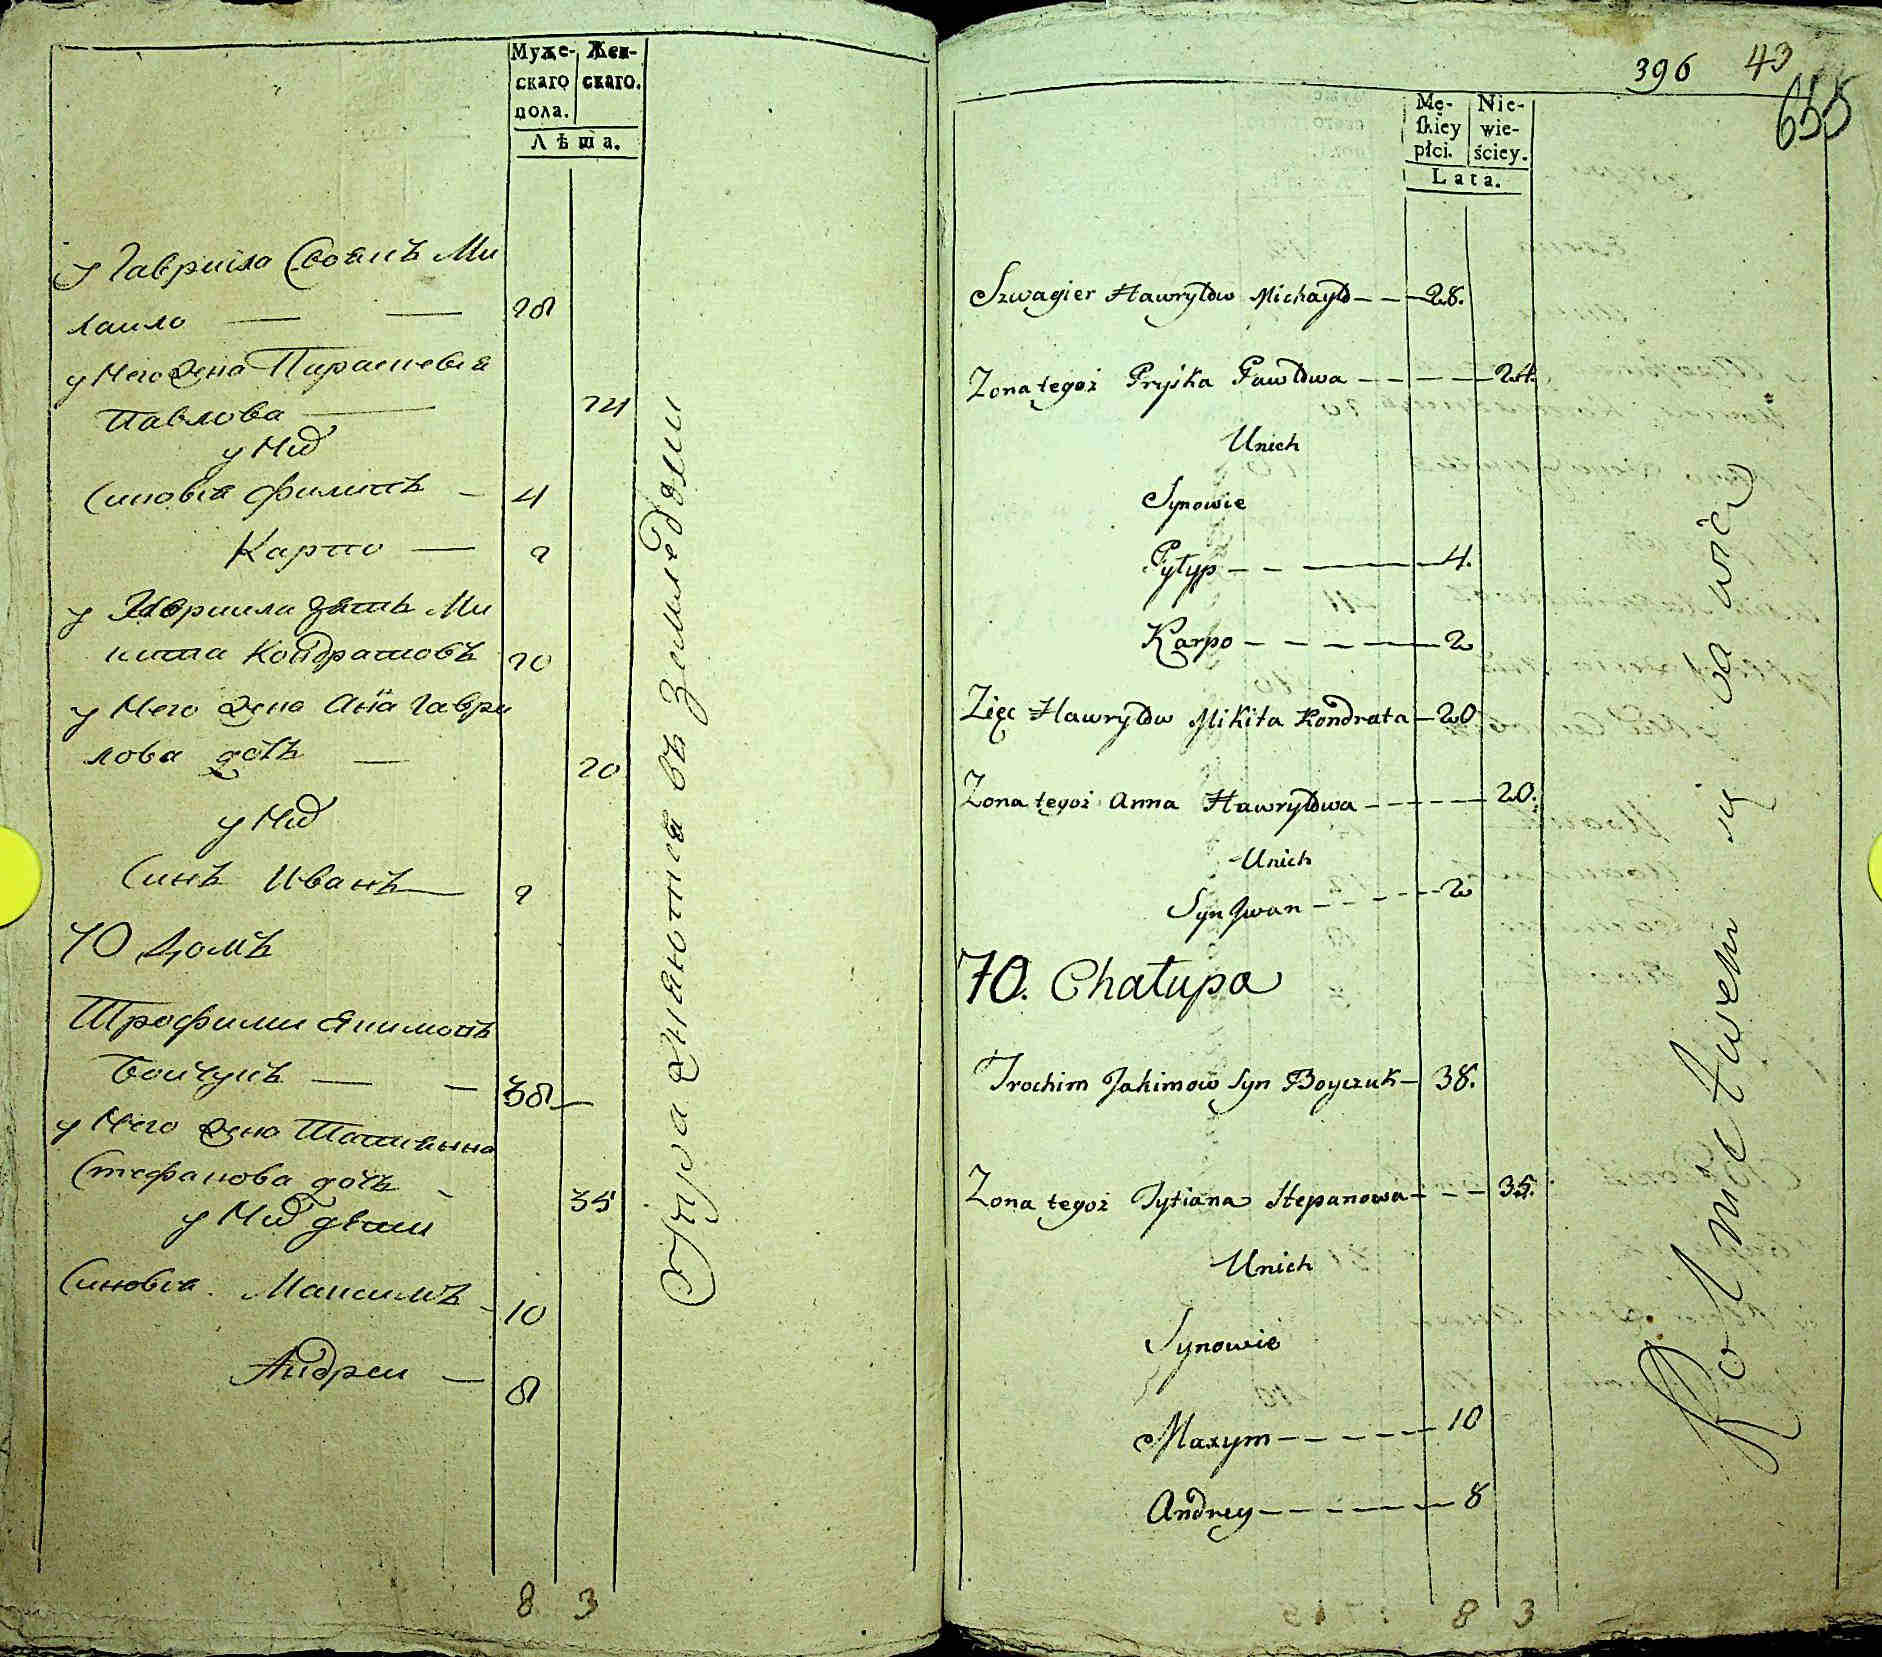 Муже- Жен-
скаго скаго.
пола.
Лѣта.
у Гаврила Своякъ Ми
хаило — — 28
у Него Жена Параскевия
Павлова — 24
у Них
Синовѣя Филипъ — 4
Карпо — 2
у Гавриила Зять Ми
кита Кондратовъ 20
у Него Жена Анна Гаври
лова дочь — 20
у Них
Синъ Иванъ — 2
70 Домъ
Трофимъ Якимовъ
Бойчукъ — — 38 —
у Него Жена Татиянна
Стефанова дочь - 35
у Них дѣти
Синовѣя. Максимъ - 10
Андреи — 8
Упражняются въ Земледѣлии
8 3
396 43
655
Mę- Nie-
skiey wie-
płci. ściey.
Lata.
Szwagier Hawryłów Michayło - - - 28.
Zona tegoż Pryśka Pawłowa - - - - 24.
Unich
Synowie
Pyłyp - - — 4.
Karpo - - - - — 2
Zięc Hawryłow Mikita Kondrata - 20
Zona tegoż Anna Hawryłowa - - - - - 20.
Unich
Syn Jwan - - - - - 2
70. Chałupa
Trochim Jakimow Syn Boyczuk - 38.
Zona tegoż Tytiana Stepanowa - - - 35.
Unich
Synowie
Maxym - - - - - - 10
Andrey - - - - - - 8
Rolnictwem się bawią
8 3